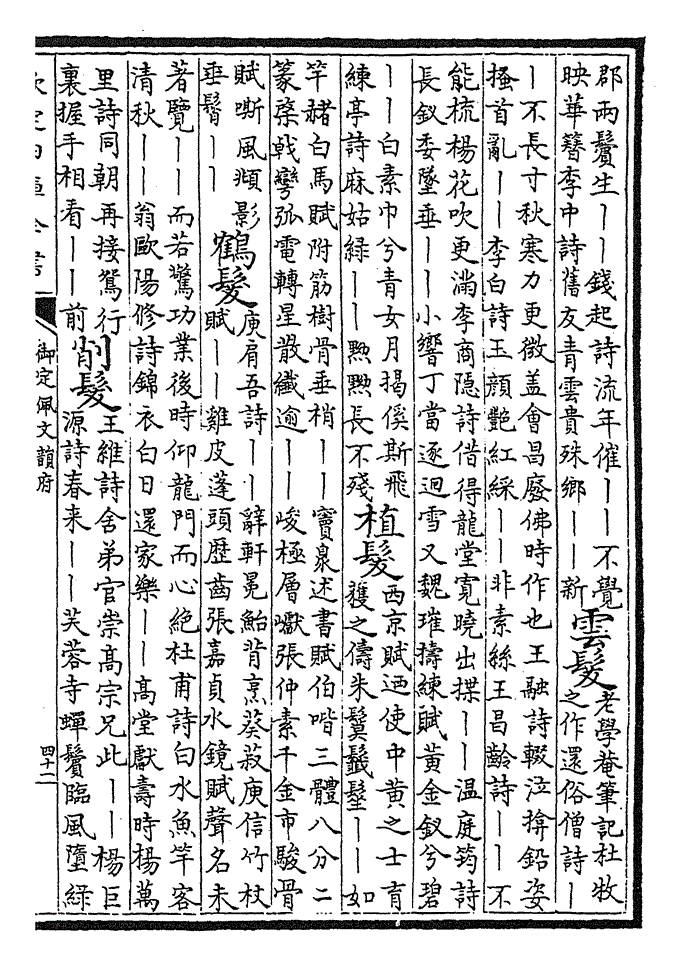 郡兩鬢生丨丨錢起詩流年催丨丨不覺
映華簪李中詩舊友青雲貴殊鄉丨丨新
雲髮
老學菴筆記杜牧
之作還俗僧詩丨
丨不長寸秋寒力更微盖會昌廢佛時作也王融詩輟泣揜鉛姿
搔首亂丨丨李白詩玉顔艷紅綵丨丨非素絲王昌齡詩丨丨不
能梳楊花吹更滿李商隱詩借得龍堂寛曉出揲丨丨温庭筠詩
長釵委墜垂丨丨小響丁當逐迴雪又魏璀擣練賦黄金釵兮碧
丨丨白素巾兮青女月揭傒斯飛
練亭詩麻姑緑丨丨㸃㸃長不殘
植髮
西京賦迺使中黄之士育
獲之儔朱鬕䰐髽丨丨如
竿赭白馬賦附筋樹骨垂梢丨丨竇臮述書賦伯喈三體八分二
篆棨戟彎弧電轉星散纎逾丨丨峻極層巘張仲素千金市駿骨
賦嘶風頫影
垂鬐丨丨
鶴髮
庾肩吾詩丨丨辭軒冕鮐背烹葵菽庾信竹杖
賦丨丨雞皮蓬頭歴齒張嘉貞水鏡賦聲名未
著覽丨丨而若驚功業後時仰龍門而心絶杜甫詩白水魚竿客
清秋丨丨翁歐陽修詩錦衣白日還家樂丨丨髙堂獻壽時楊萬
里詩同朝再接鴛行
裏握手相看丨丨前
削髮
王維詩舍弟官崇髙宗兄此丨丨楊巨
源詩春来丨丨芙蓉寺蟬鬢臨風墮緑
欽定四庫全書
御定佩文韻府
四十二